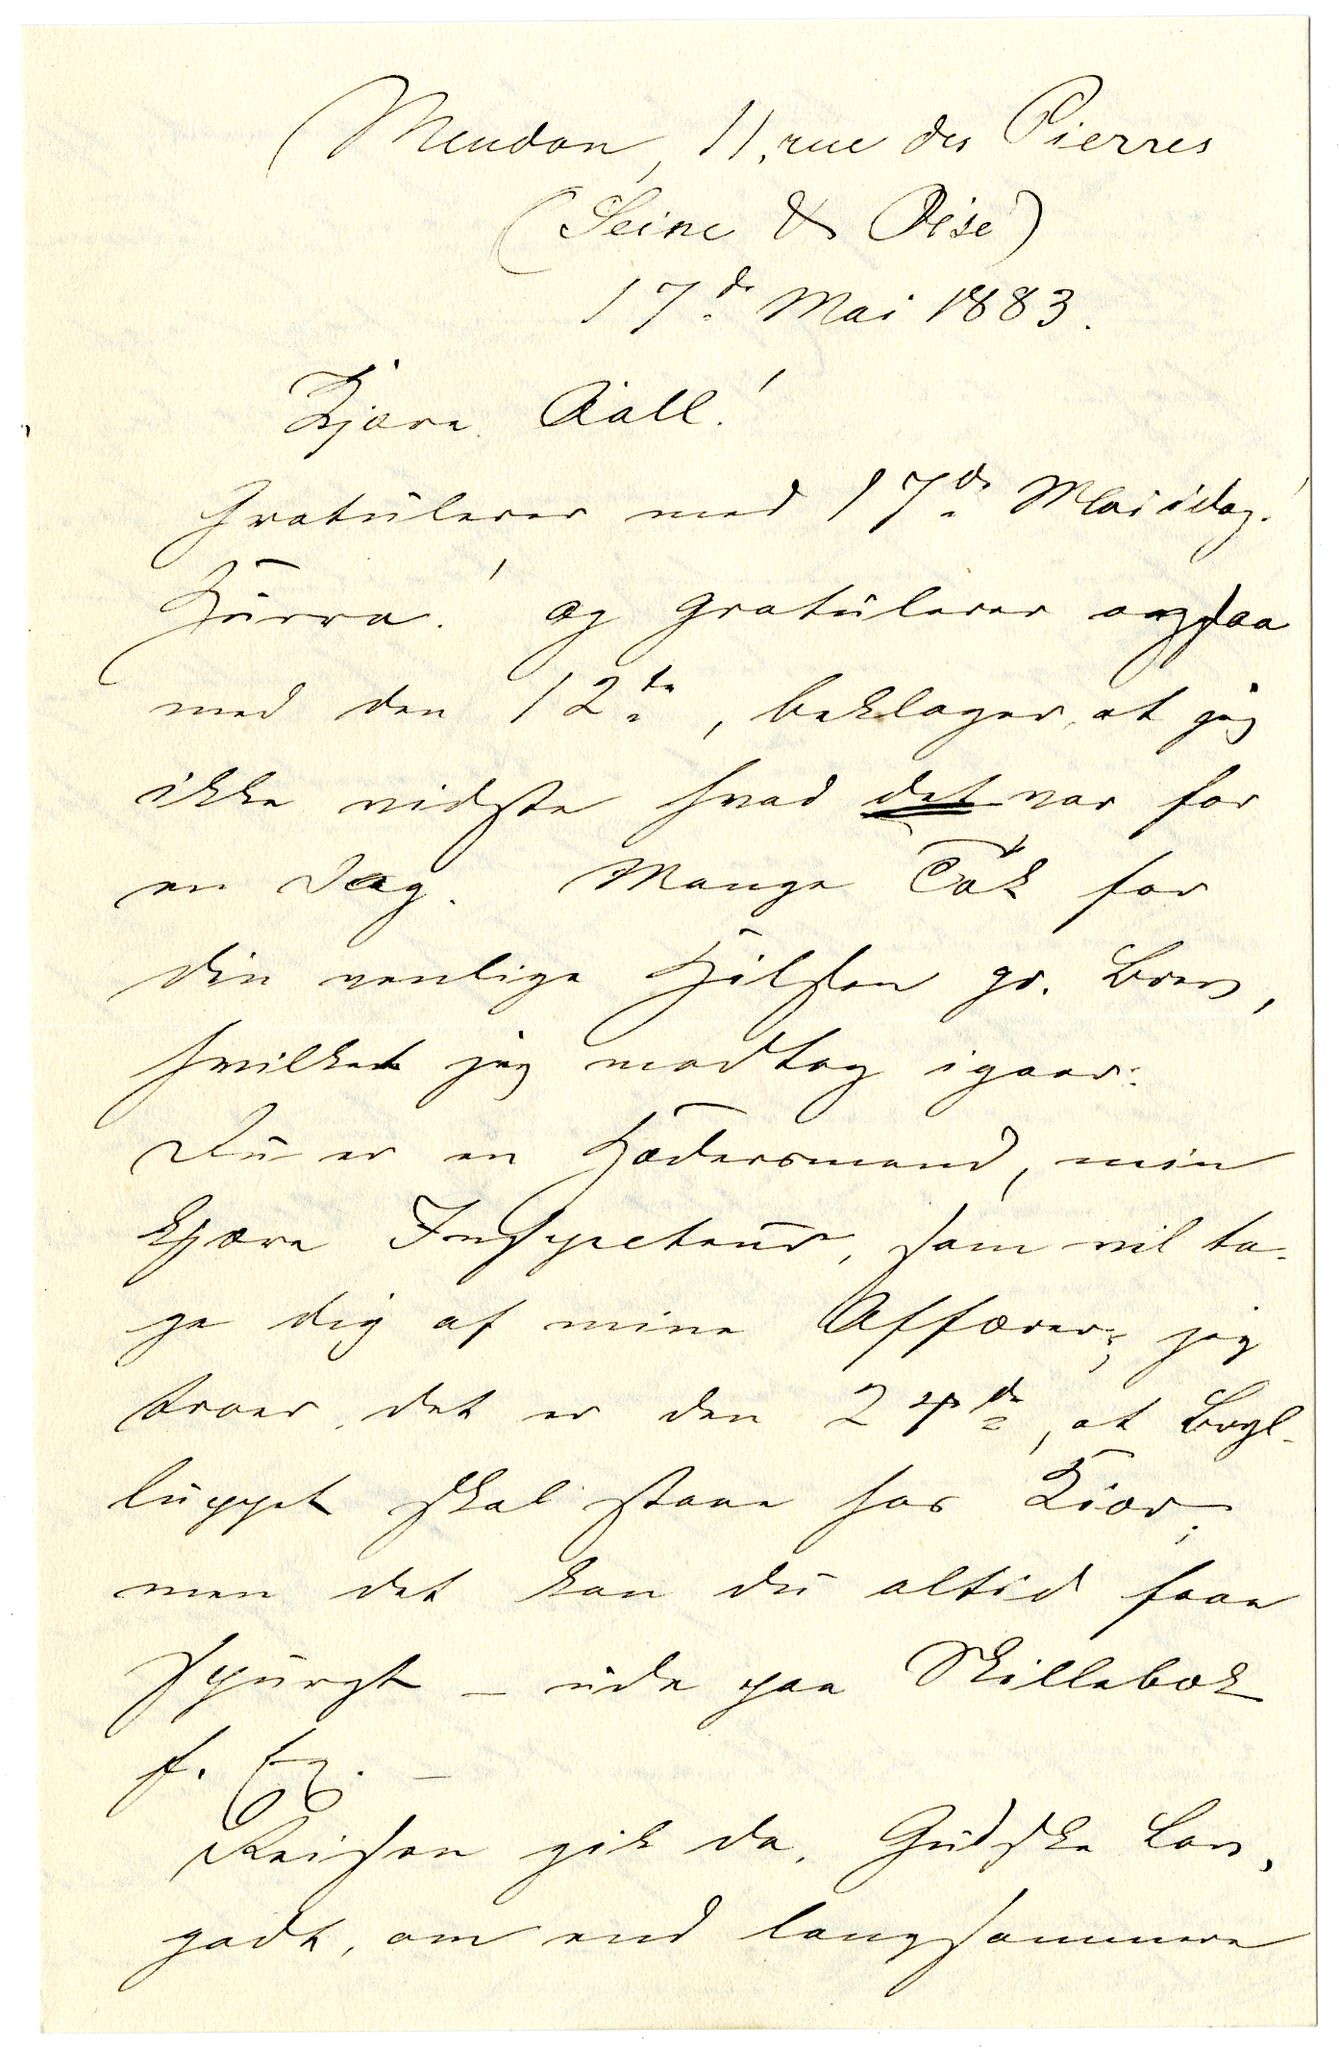 Meudon, 11, rue des Pierres
(Seine & Oise)
17de Mai 1883.
Kjære Aall!
Gratulerer med 17de Mai idag!
Hurra! og gratulerer ogsaa
med den 12te, beklager, at jeg
ikke vidste hvad det var for
en Dag. Mange Tak for
din venlige Hilsen pr. Brev,
hvilket jeg modtog igaar.
Du er en Hædersmand, min
kjære Inspecteur, som vil ta-
ge dig af mine Affærer; jeg
troer det er den 24de, at Bryl-
luppet skal staae hos Kiær,
men det kan du altid faae
spurgt – ude paa Skillebæk
f. Ex. –
Reisen gik da, Gudske Lov,
godt, om end langsommere